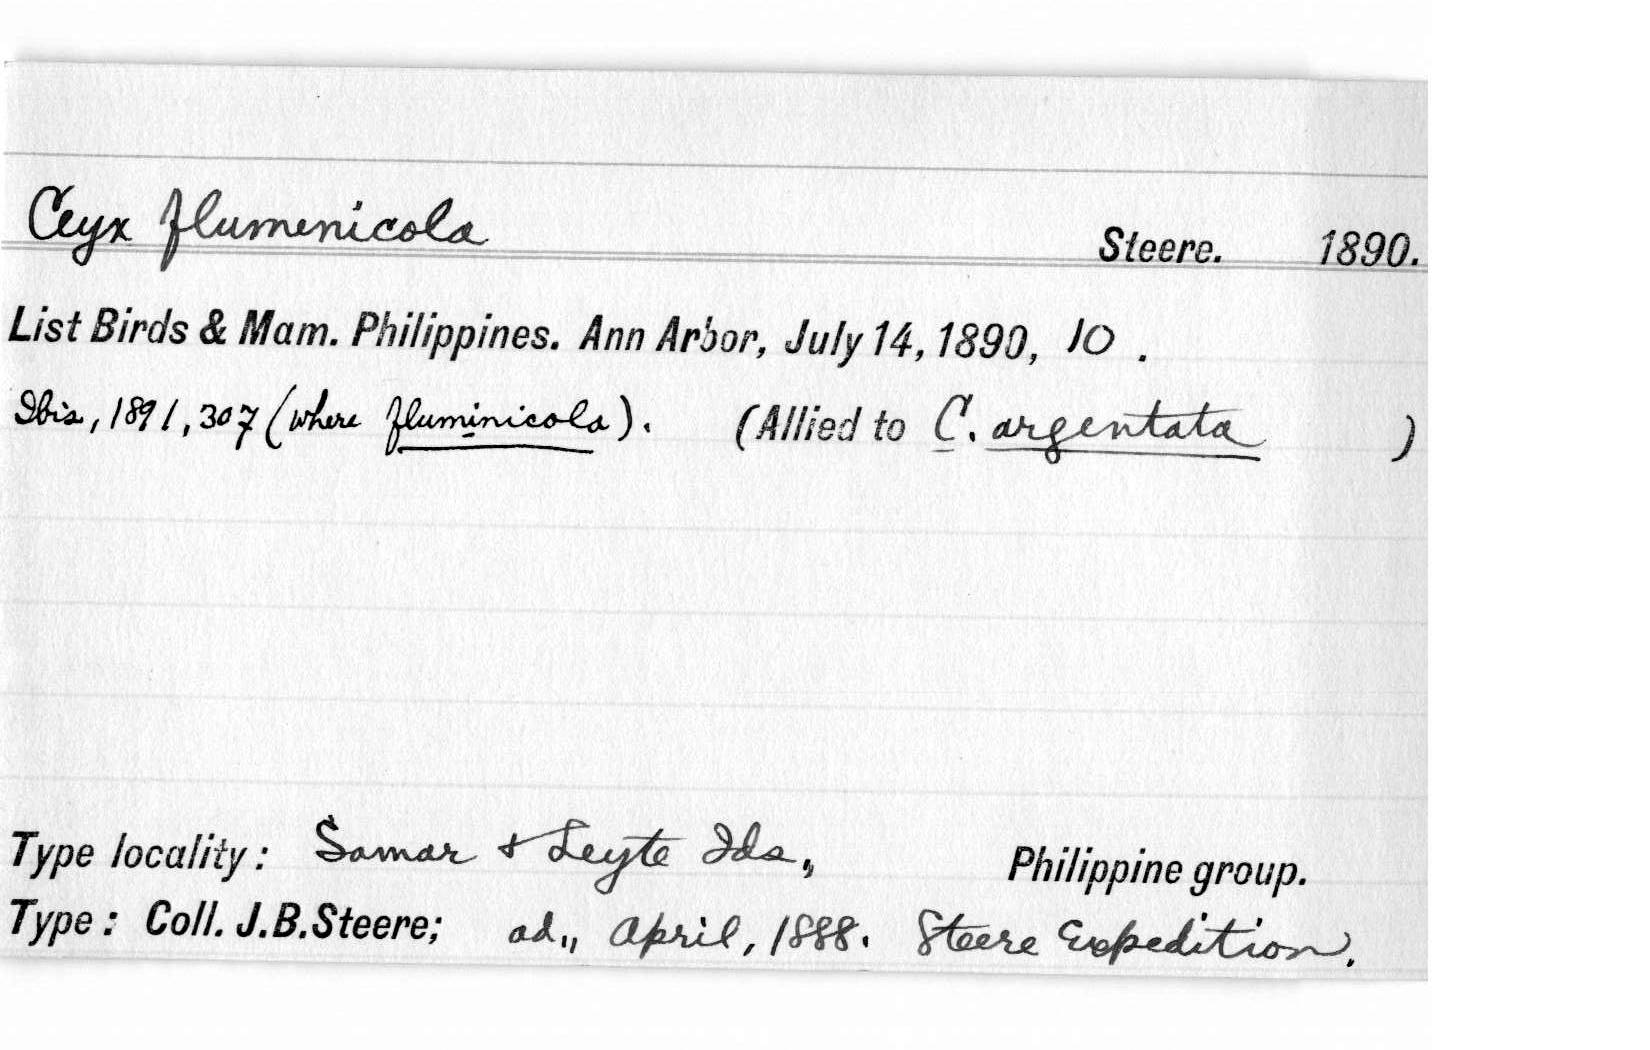 Ceyx flumenicola Steere. 1890.
List Birds & Mam. Philippines. Ann Arbor, July 14, 1890, 10.
Ibis, 1891, 307 (where fluminicola). (Allied to C. argentata )
Type locality: Samar & Leyte Ids., Philippine group.
Type: Coll. J.B.Steere; ad., April, 1888. Steere Expedition.